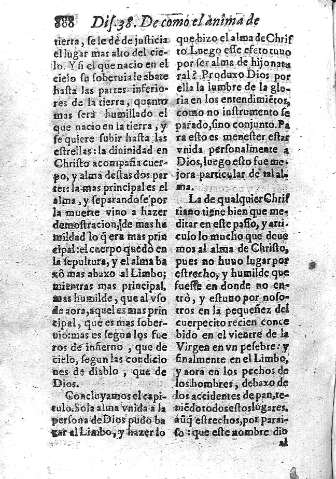 888 Dis. 38. De como el ànima de
tierra, se le dè de justicia
el lugar mas alto del cie-
lo. Y si el que nacio en el
cielo se soberuia le abate
hasta las partes inferio-
res de la tierra, quanto
mas será humillado el
que nacio en la tierra, y
se quiere subir hasta las
estrellas: la diuinidad en
Christo acompaña cuer-
po, y alma destas dos par
tes: la mas principal es el
alma, y separandose por
la muerte vino a hazer
demostracion, q̃ de mas hu
mildad lo q̃ era mas prin
cipal: el cuerpo quedó en
la sepultura, y el alma ba
xò mas abaxo al Limbo;
mientras mas principal,
mas humilde, que al vso
de aora, aquel es mas prin
cipal, que es mas sober-
uio: mas es segun los fue
ros de infierno, que de
cielo, segun las condicio
nes de diablo, que de
Dios.
Concluyamos el capi-
tulo. Sola alma vnida a la
persona de Dios pudo ba
xar al Limbo, y hazer lo
que hizo el alma de Chris
to. Luego esse efeto tuuo
por ser alma de hijo natu
ral? Produxo Dios por
ella la lumbre de la glo-
ria en los entendimiẽtos,
como no instrumento se
parado, sino conjunto. Pa
ra esto es menester estar
vnida personalmente a
Dios, luego esto fue me-
jora particular de tal al-
ma.
La de qualquier Chris
tiano tigne bien que me-
ditar en este passo, y arti-
culo lo mucho que deue
mos al alma de Christo,
pues no huuo lugar por
estrecho, y humilde que
fuesse en donde no en-
trò, y estuuo por noso-
tros en la pequeñez del
cuerpecito recien conce
bido en el vientre de la
Virgen en vn pesebre: y
finalmente en el Limbo,
y aora en los pechos de
los hombres, debaxo de
los accidentes de pan, te-
niẽdo todos estos lugares,
aũq̃ estrechos, por parai-
so: que este nombre dio
al